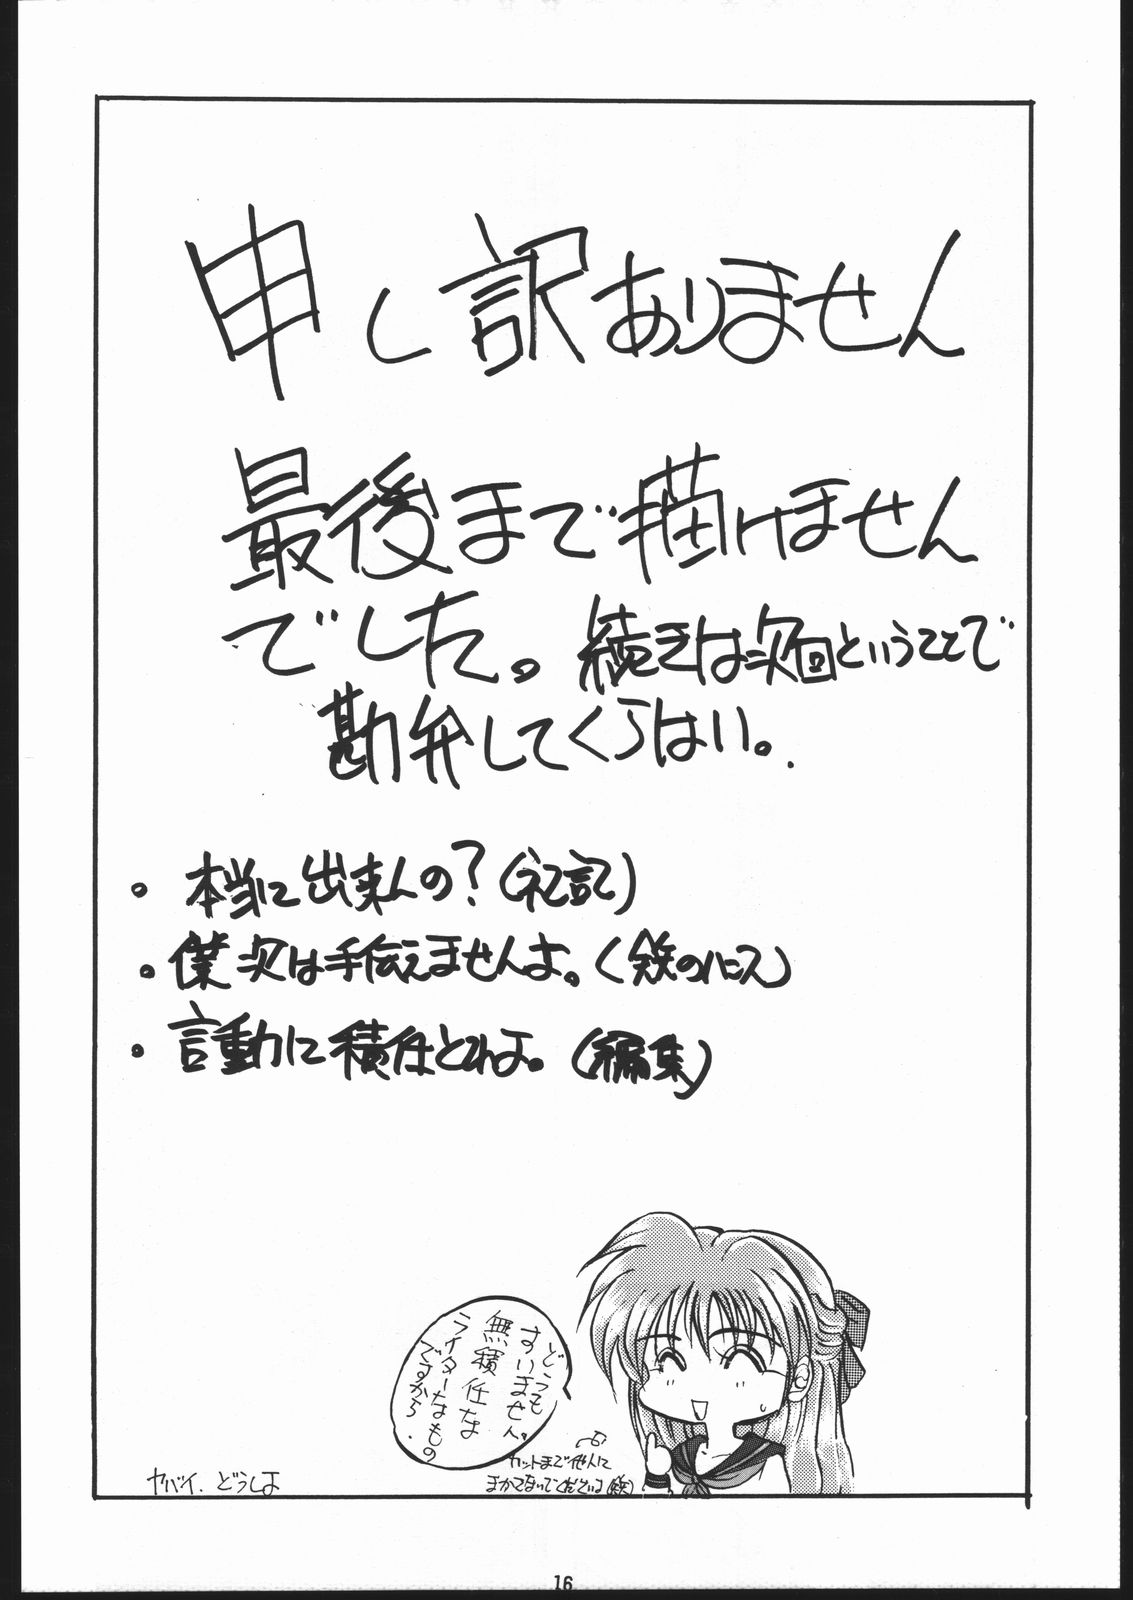 申し訳ありません
最後まで描けません
でした。続きは次回ということで
勘弁してくらはい。
・本当に出来んの？(礼記)
・僕次は手伝えませんよ。(鉄のハンス)
・言動に積任とれよ。(編集)
どうも
すいません。
無積任な
ライターなもの
ですから.
カットまで他人に
まかてないでください(鉄)
ヤバイ.どうしよ
16